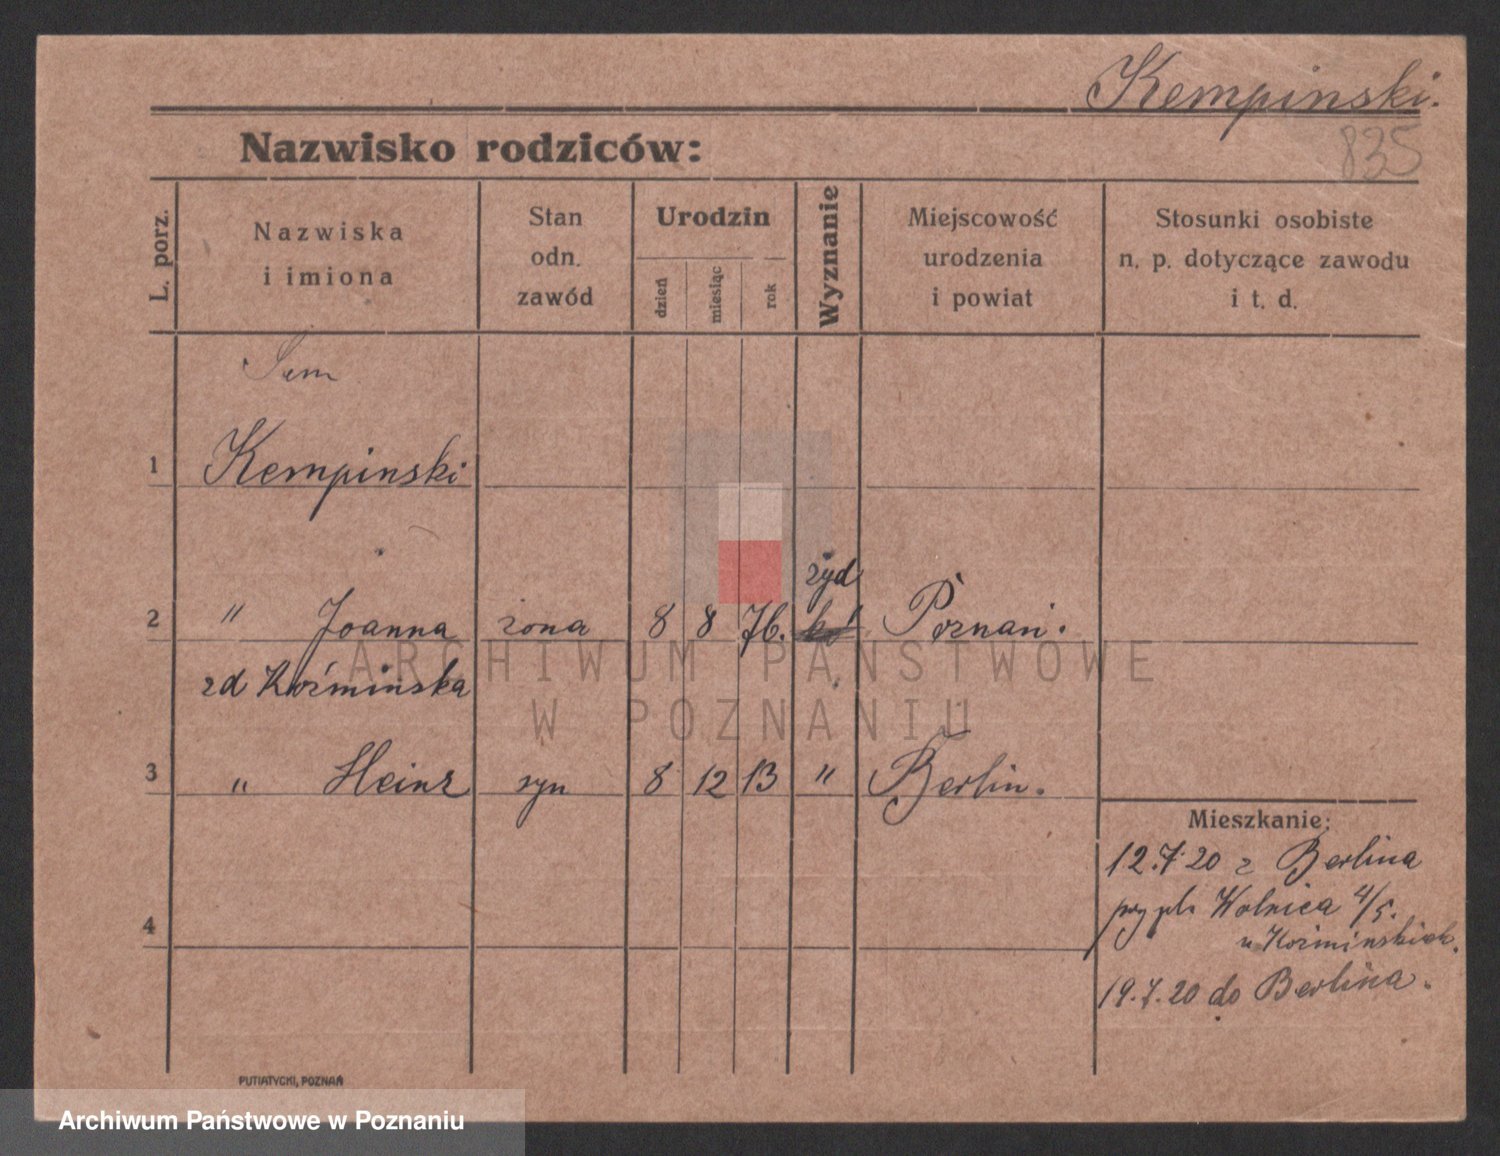 Kempinski.
835
Nazwisko rodziców:
L. porz.
Nazwiska
i imiona
Stan
odn.
zawód
Urodzin
dzień
miesiąc
rok
Wyznanie
Miejscowość
urodzenia
i powiat
Stosunki osobiste
n. p. dotyczące zawodu
i t. d.
1
Kempinski
2 " Joanna żona 8 8 76. żyd Poznań.
zd Koźmińska
3 " Heinz syn 8 12 13 " Berlin.
4
Mieszkanie:
12.7.20 z Berlina
przy pl. Wolnica 4/5.
u Koźmińskich.
19.7.20 do Berlina.
PUTIATYCKI, POZNAŃ
ARCHIWUM PAŃSTWOWE
W POZNANIU
Archiwum Państwowe w Poznaniu